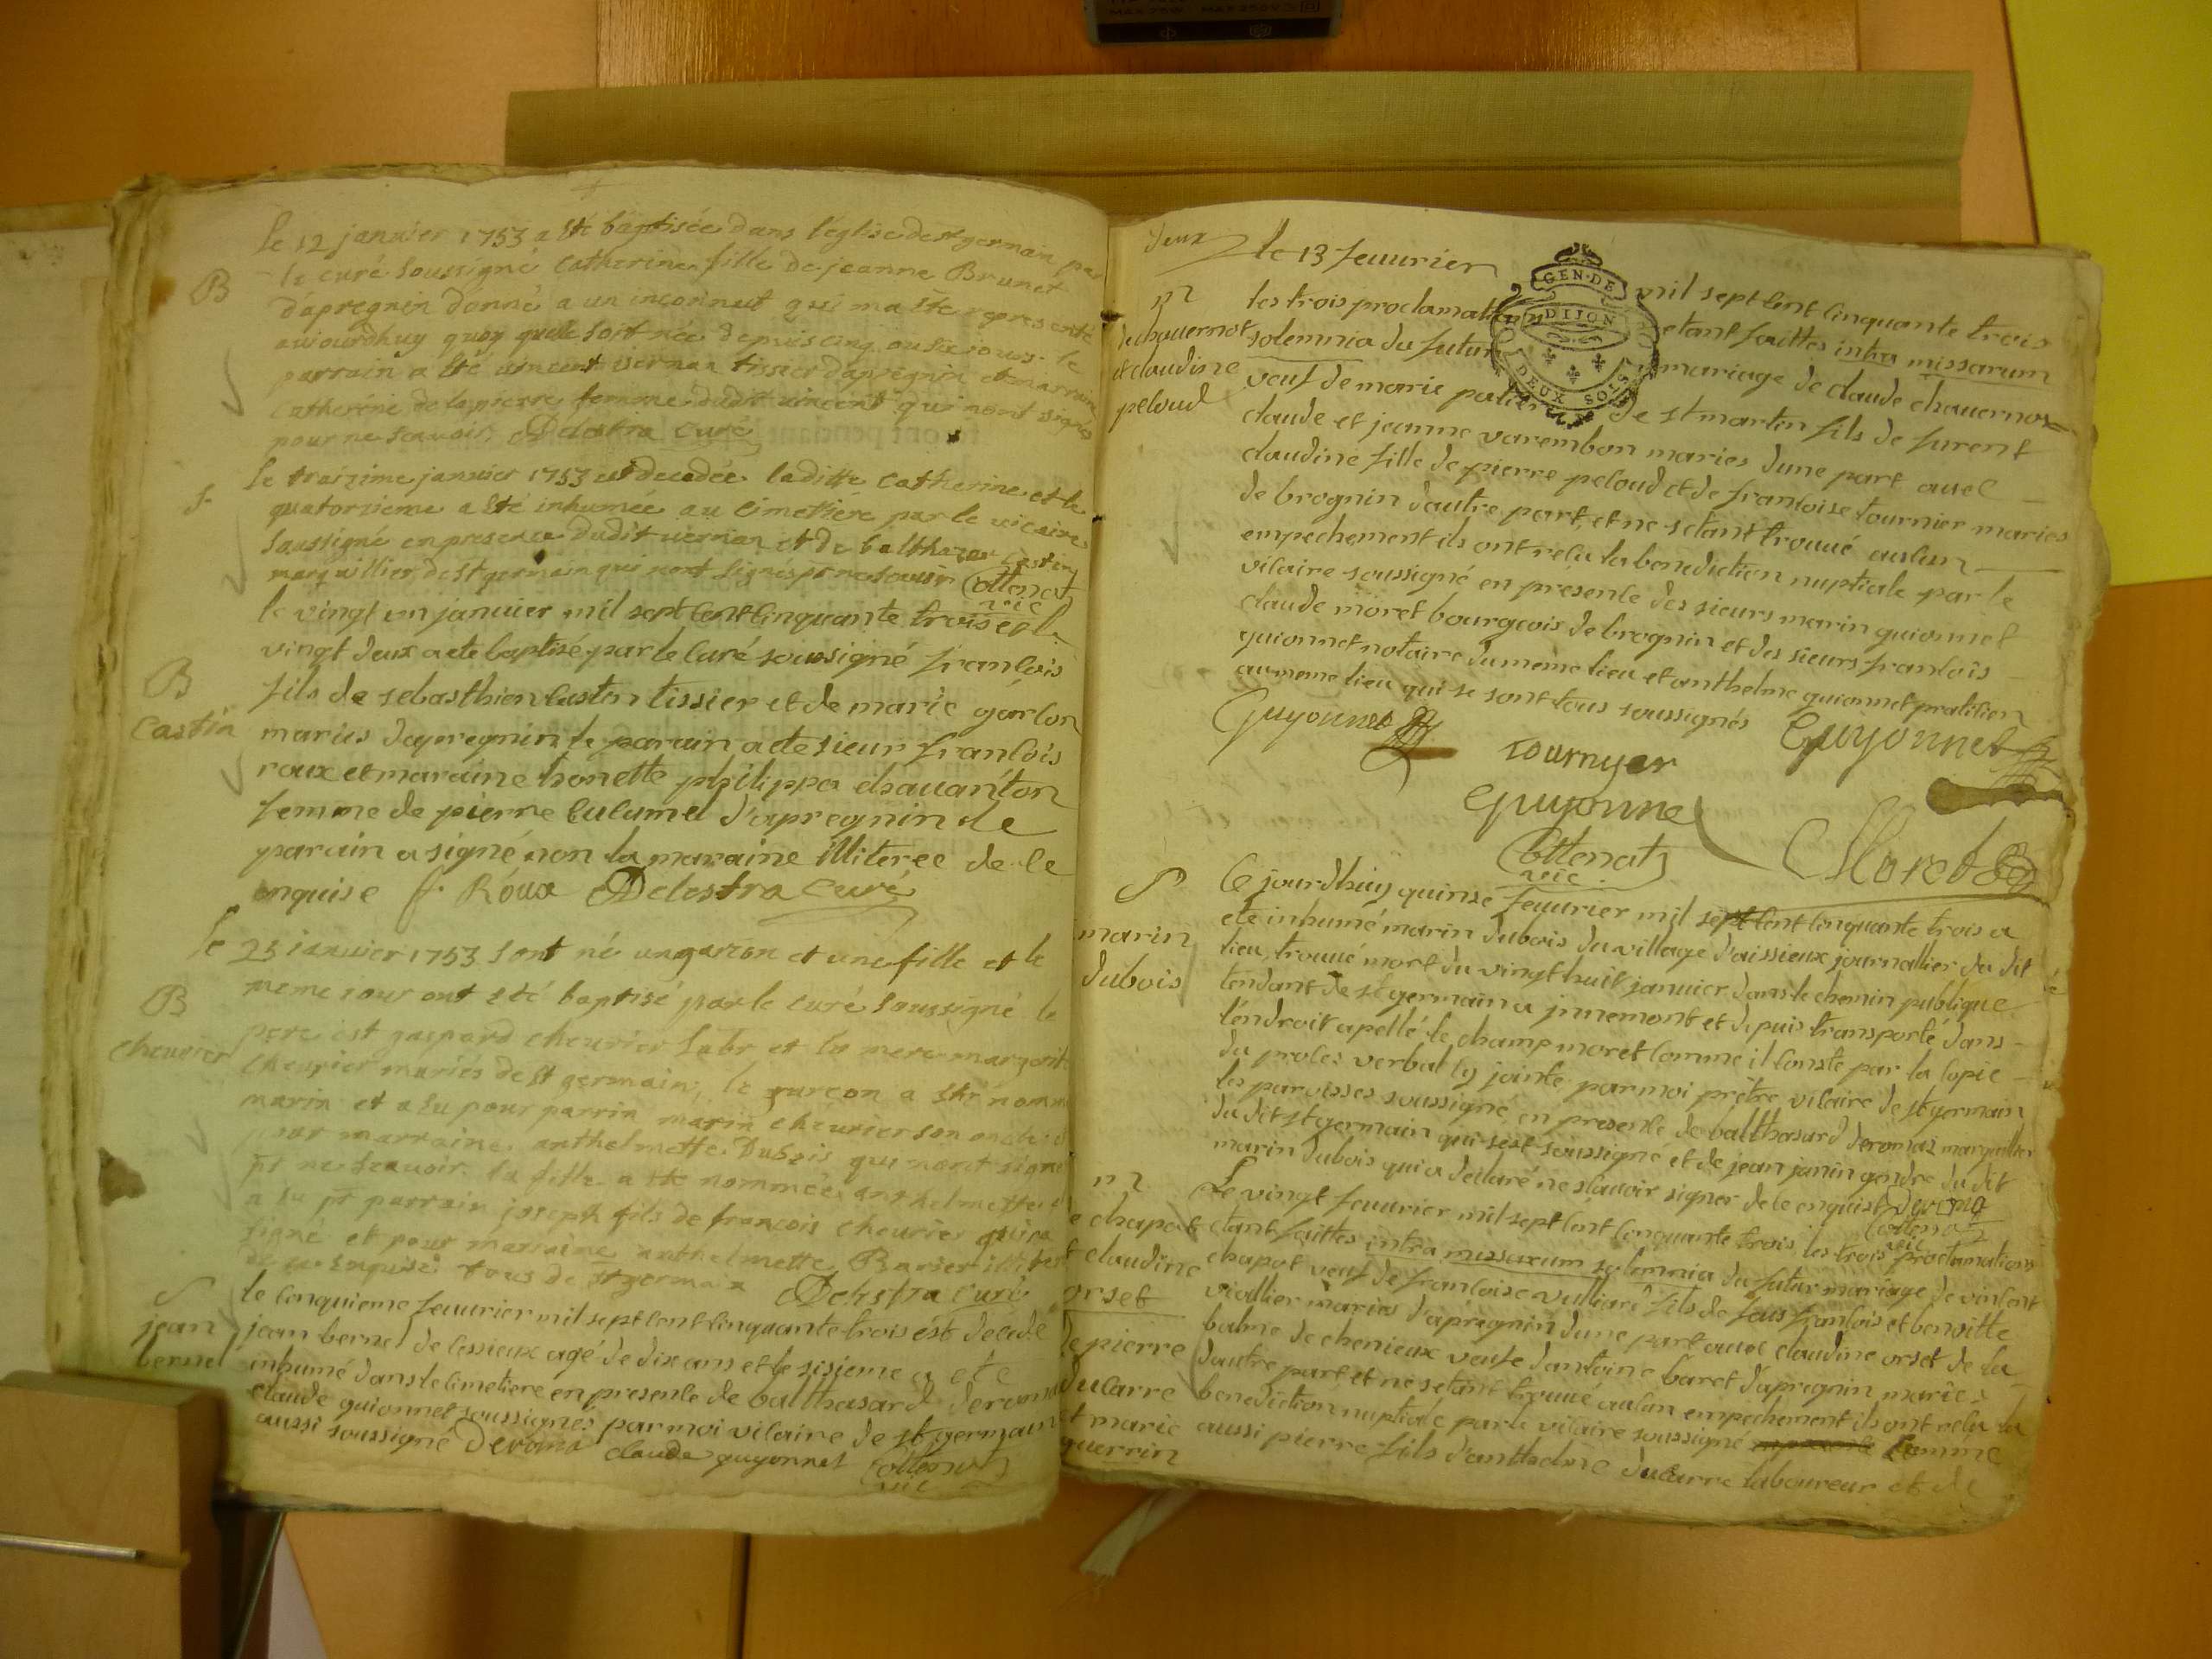 le 12 janvier 1753 a eté baptisée dans l'eglise de st germain par
B
le curé soussigné catherine fille de jeanne Brunet
d'apregnin donné a un inconnut qui ma ete representé
aujourdhuy quoy quelle soit née depuis cinq ou six jours. le
parrain a eté vincent vernan tissier dapregnin et marraine
catherine de lapierre femme dudit vincent qui nont signés
pour ne scavoir. Delestra curé
S
le traizime janvier 1753 est decedée laditte catherine et le
quatorzieme a eté inhumée au cimetiére par le vicaire
soussigné en presence dudit vernan et de balthazar
marguillier de st germain qui nont signés pr ne scavoir Cottenat
vic
le vingt un janvier mil sept cent cinquante trois et le
vingt deux a ete baptisé par le curé soussigné francois
B
Castin
fils de sebasthien Castin tissier et de marie
mariés dapregnin le parain a ete sieur francois
roux et maraine honette philippa chavanton
femme de pierre cucumel d'apregnin le
parain a signé non la maraine illiteree de le
enquise f. Roux Delestra curé
le 23 janvier 1753 sont né un garcon et une fille et le
meme jour ont eté baptisé par le curé soussigné le
B
cheurier
pere est gaspard cheurier labr et la mere margorit
cheurier mariés de st germain, le garcon a eté nommé
marin et a eu pour parrin marin cheurier son oncle
pour marraine anthelmette Dubois qui nont signé
pr ne scavoir. la fille a ete nommée anthelmette
a eu pr parrain joseph fils de francois cheurier qui a
signé et pour marraine anthelmette Barier
de ce enquise tous de st germain Delestra curé
S
jean
bernel
le cinquieme feuvrier mil sept cent cinquante trois est decede
jean bernel de cessieux agé de dix ans et le sisieme a ete
inhumé dans le cimetiere en presence de balthasard deroma
claude guionnet soussignés par moi vicaire de st germain
aussi soussigné Deroma claude guyonnet Cottenat
vic
deux
le 13 feuvrier mil sept cent cinquante trois
m
de chauernot
et claudine
peloud
les trois proclamations etant faittes intra missarum
solemnia du futur mariage de claude chauernot
veuf de marie de st martin fils de furent
claude et jeanne varembon maries dune part avec
claudine fille de pierre peloud et de francoise tournier maries
de brognin dautre part, et ne setant trouué aucun
empechement ils ont recu la benediction nuptiale par le
vicaire soussigné en presence des sieurs marin guionnet
claude moret bourgeois de brognin et des sieurs francois
guionnet notaire du meme lieu et anthelme guionnet praticien
au meme lieu qui se sont tous soussignés
GEN·DE
DIJON
DEUX SOLS
Guyonnet
Tournyer
Guyonnet
Guyonne
Cottenat
vic
CMoret
S
marin
dubois
Ce jourdhuy quinse feuvrier mil sept cent cinquante trois a
ete inhumé marin dubois du village d'aissieux journallier du dit
lieu, trouué mort du vingt huit janvier dans le chemin publique
tendant de st germain a jnnemont et depuis transporté dans
l'endroit apellé le champ moret comme il conste par la copie
du proces verbal cy jointe par moi prêtre vicaire de st germain
les paroisses soussigné en presence de balthasard deromaz marguillier
du dit st germain qui s'est soussigné et de jean janin gendre du dit
marin dubois qui a declaré ne scauoir signer de ce enquis Deroma
Cottenat
vic
m
chapot
claudine
orset
Le vingt feuvrier mil sept cent cinquante trois les trois proclamations
etant faittes intra missarum solemnia du futur mariage de vincent
chapot veuf de francoise vulliard fils de feus francois et benoitte
viollier maries d'apregnin dune part avec claudine orset de la
balme de chenieux veuve dantoine baret dapregnin mariés
dautre part et ne setant trouué aucun empechement ils ont recu la
benediction nuptiale par le vicaire soussigné comme
de pierre
ducarre
et marie
guerrin
aussi pierre fils d'anthelme ducarre laboureur et de